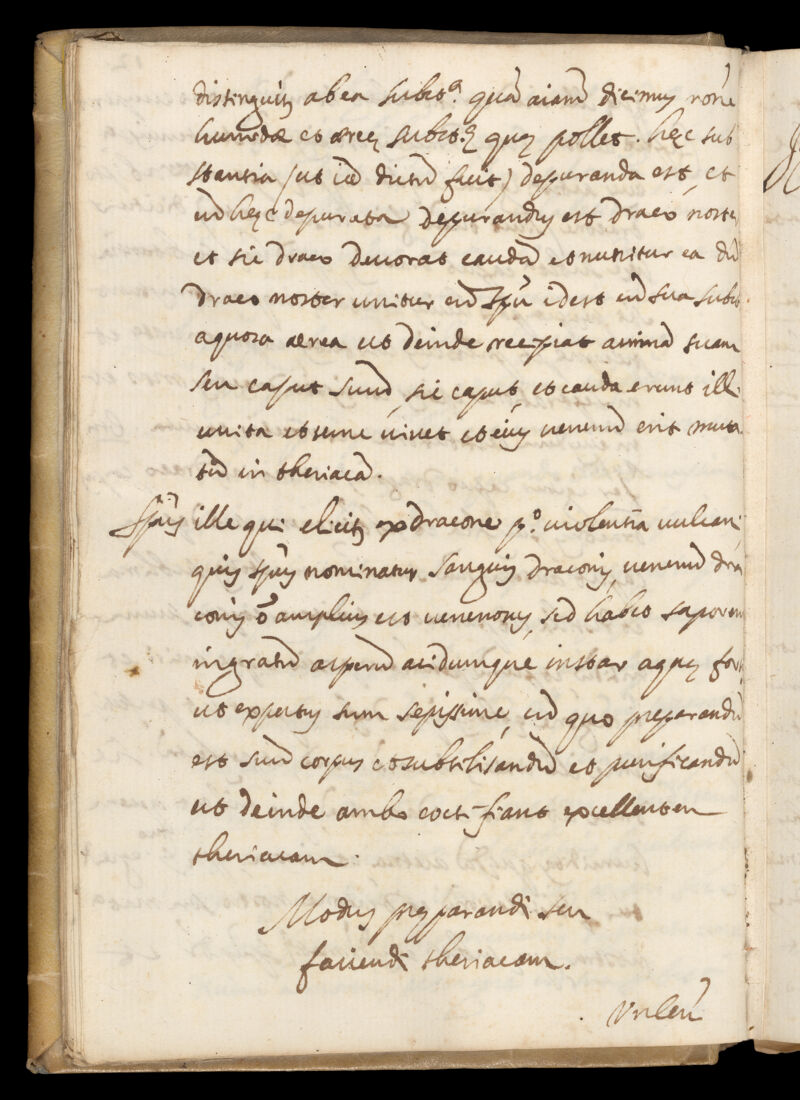 distinguitꝫ ab ea subst.ª quā aīam dicimus rōne
humidæ et aereę subst.ę quę pollet. hęc sub
stantia (ut iā dictū fuit) depuranda est, et
cū hęc depurata depurandus est draco noster
et sic draco devorat caudā et nutritur ea dū
draco noster unitur cū spū idest cū sua subst.
aquosa aerea ut deinde recipiat animā suam
seu caput suum, sic caput, et cauda erunt ill.
unita et sene vivet et eius venenū erit muta
tū in theriacā.
Spūs ille qui elicitꝫ ex dracone p.º violentia vulcani
quis spūs nominatur sanguis draconis, venenū dra
conis ō amplius est venenosus, sed habet saporem
ingratū asperū acidumque instar aquę fort.
ut expertus sum sepissime, cū quo preparandū
est suū corpus et subtilisandū et purificandū
ut deinde ambo cocti fiant excellentem
theriacam.
Modus pręparandi seu
faciendi theriacam.